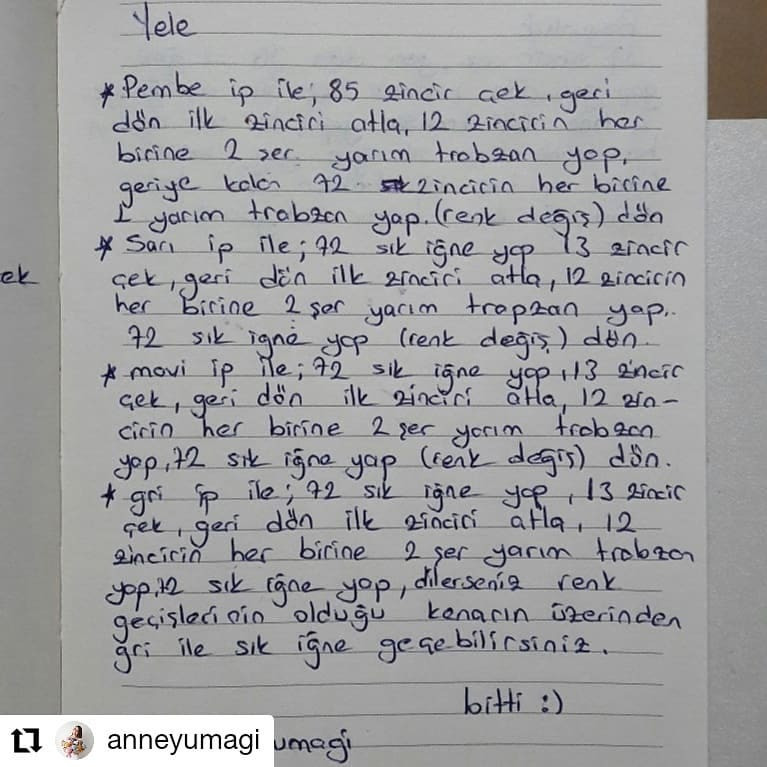 Yele
* Pembe ip ile; 85 zincir çek, geri
dön ilk zinciri atla, 12 zincirin her
birine 2 şer yarım trabzan yap,
geriye kalan 72 zincirin her birine
1 yarım trabzan yap. (renk değiş) dön
* Sarı ip ile; 72 sık iğne yap 13 zincir
ek
çek, geri dön ilk zinciri atla, 12 zincirin
her birine 2 şer yarım tropzan yap.
72 sık igne yap (renk değiş) dön.
* mavi ip ile; 72 sık iğne yap, 13 zincir
çek, geri dön ilk zinciri atla, 12 zin-
cirin her birine 2 şer yarım trabzan
yap, 72 sık iğne yap (renk değiş) dön.
* gri ip ile; 72 sık iğne yap, 13 zincir
çek, geri dön ilk zinciri atla, 12
zincirin her birine 2 şer yarım trabzan
yap, 72 sık iğne yap, dilerseniz renk
geçişlerinin olduğu kenarın üzerinden
gri ile sık iğne geçebilirsiniz.
bitti :)
umagi
anneyumagi